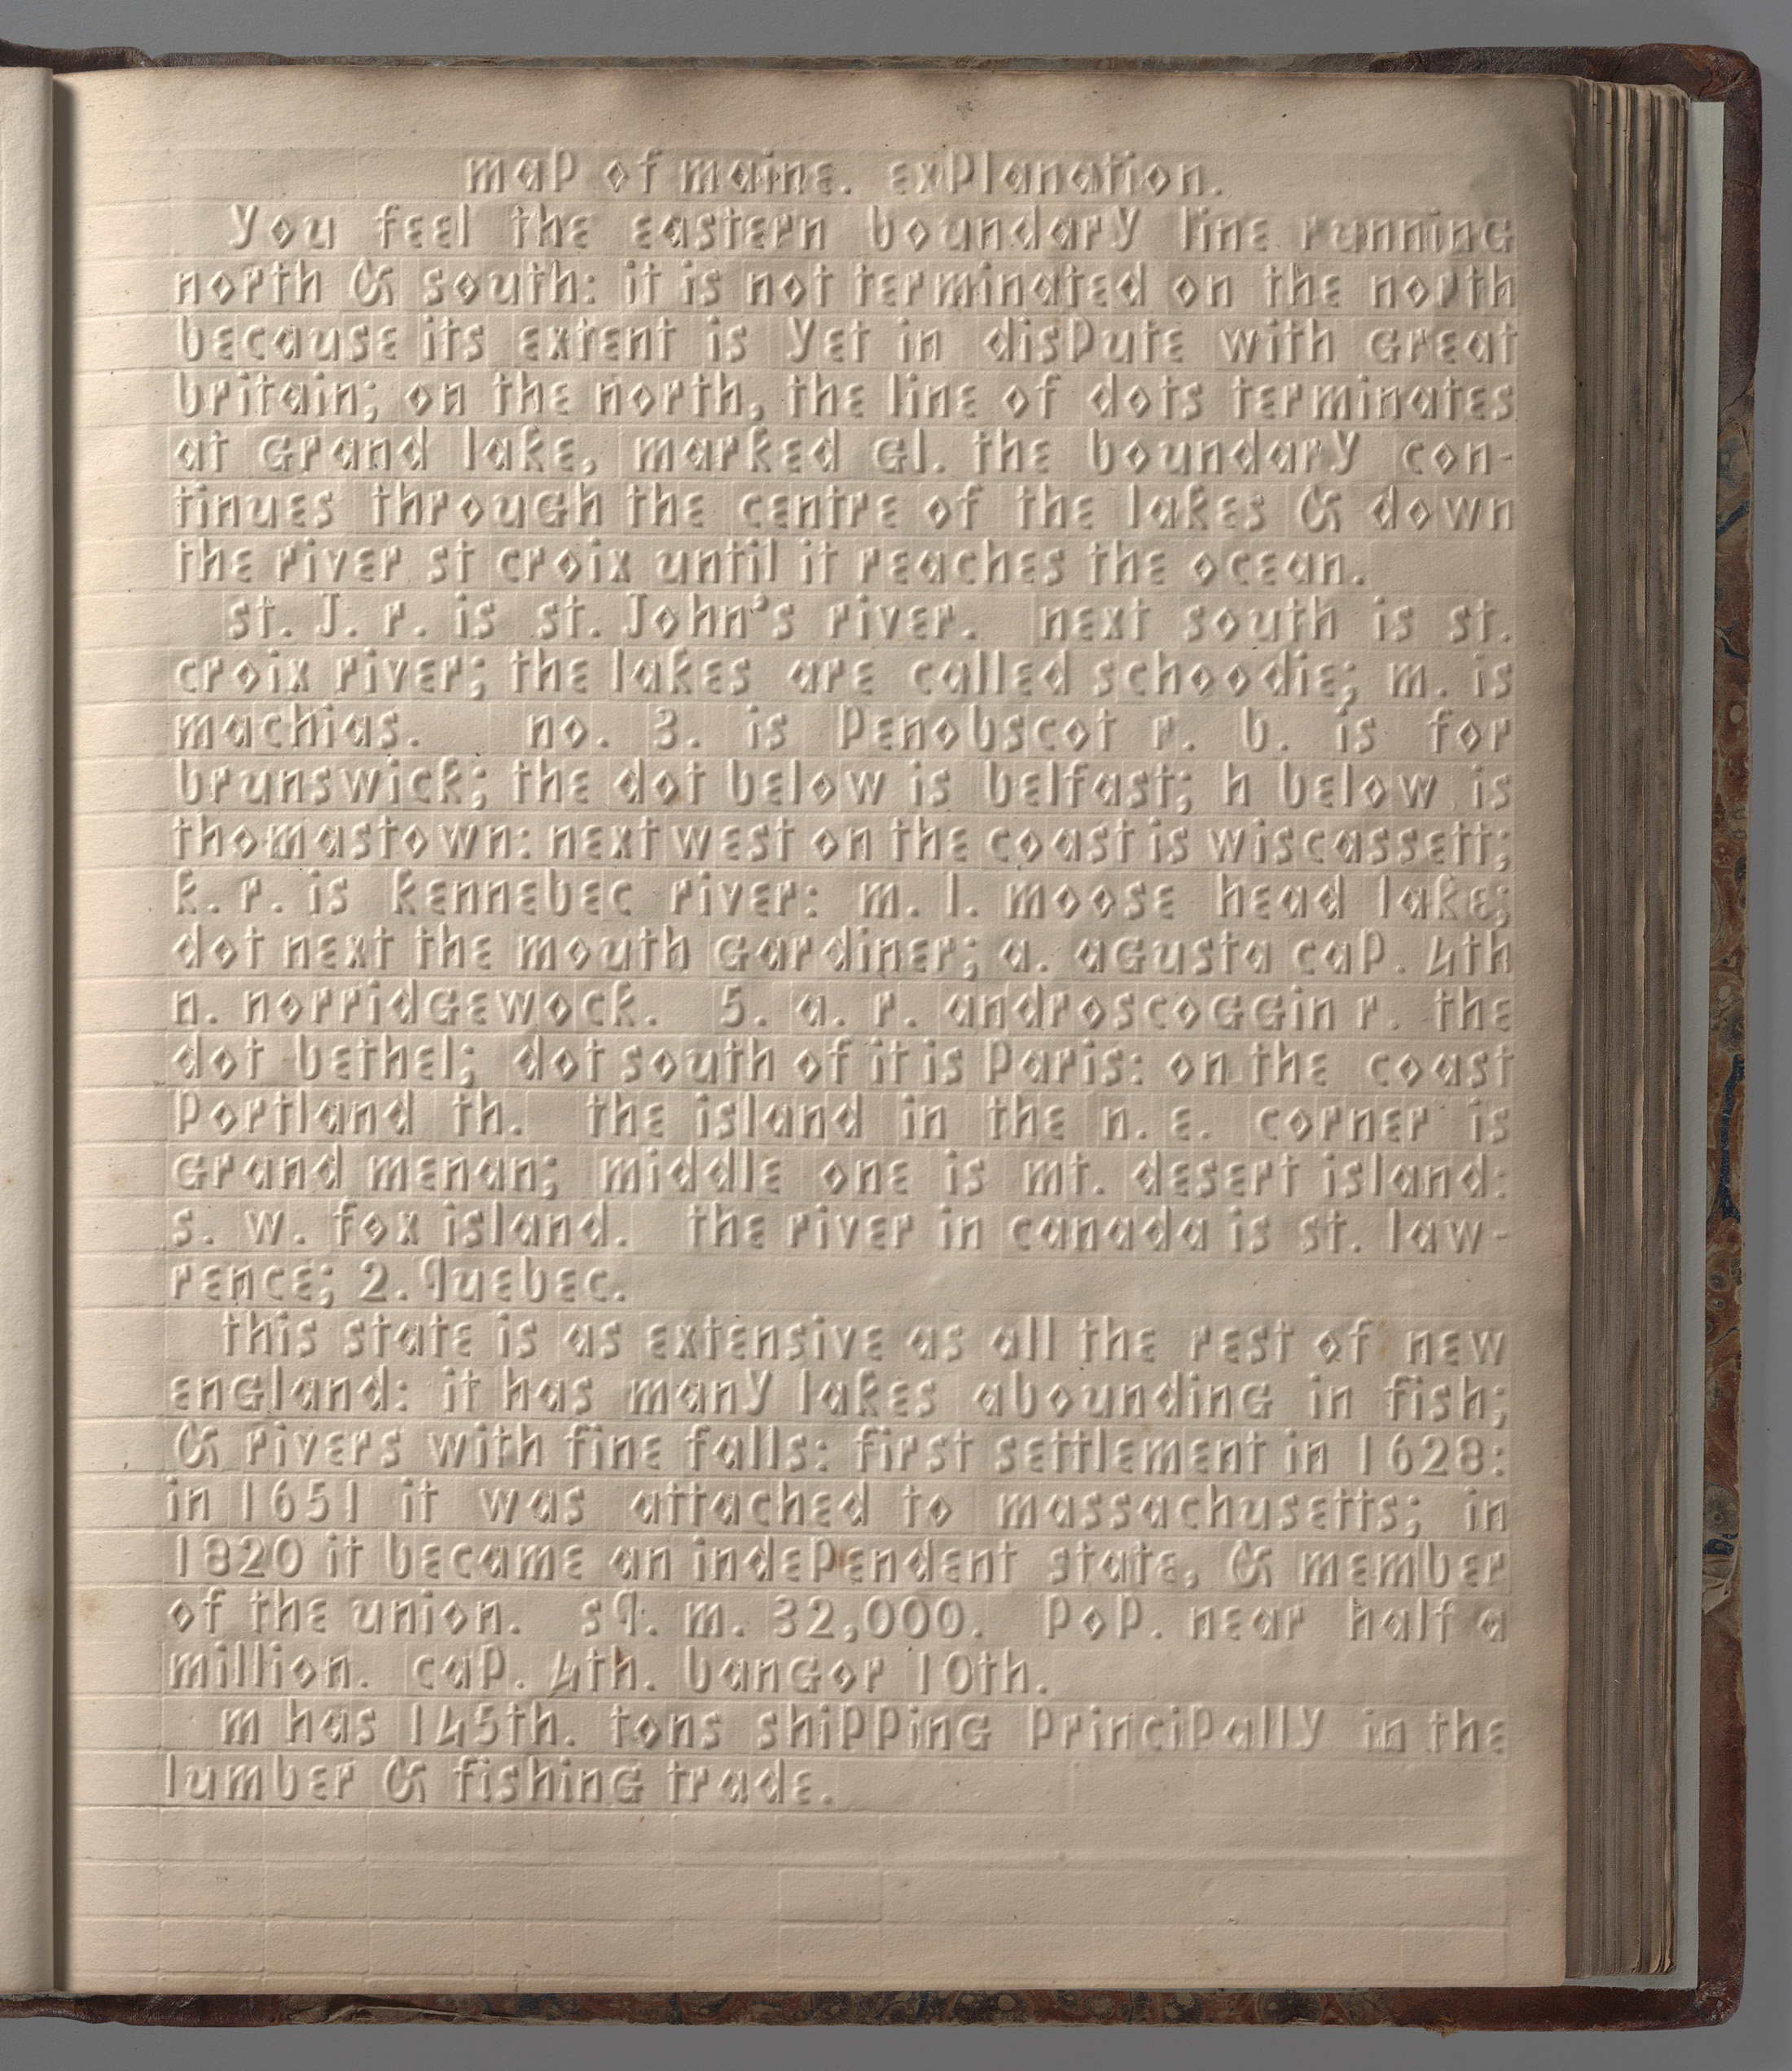 map of maine. explanation.
you feel the eastern boundary line running
north & south: it is not terminated on the north
because its extent is yet in dispute with great
britain; on the north, the line of dots terminates
at grand lake, marked gl. the boundary con-
tinues through the centre of the lakes & down
the river st croix until it reaches the ocean.
st. J. r. is st. John's river. next south is st.
croix river; the lakes are called schoodie; m. is
machias. no. 3. is penobscot r. b. is for
brunswick; the dot below is belfast; h below is
thomastown: next west on the coast is wiscassett;
k. r. is kennebec river: m. l. moose head lake;
dot next the mouth gardiner; a. agusta cap. 4th
n. norridgewock. 5. a. r. androscoggin r. the
dot bethel; dot south of it is paris: on the coast
portland th. the island in the n. e. corner is
grand menan; middle one is mt. desert island:
s. w. fox island. the river in canada is st. law-
rence; 2. quebec.
this state is as extensive as all the rest of new
england: it has many lakes abounding in fish;
& rivers with fine falls: first settlement in 1628:
in 1651 it was attached to massachusetts; in
1820 it became an independent state, & member
of the union. sq. m. 32,000. pop. near half a
million. cap. 4th. bangor 10th.
m has 145th. tons shipping principally in the
lumber & fishing trade.